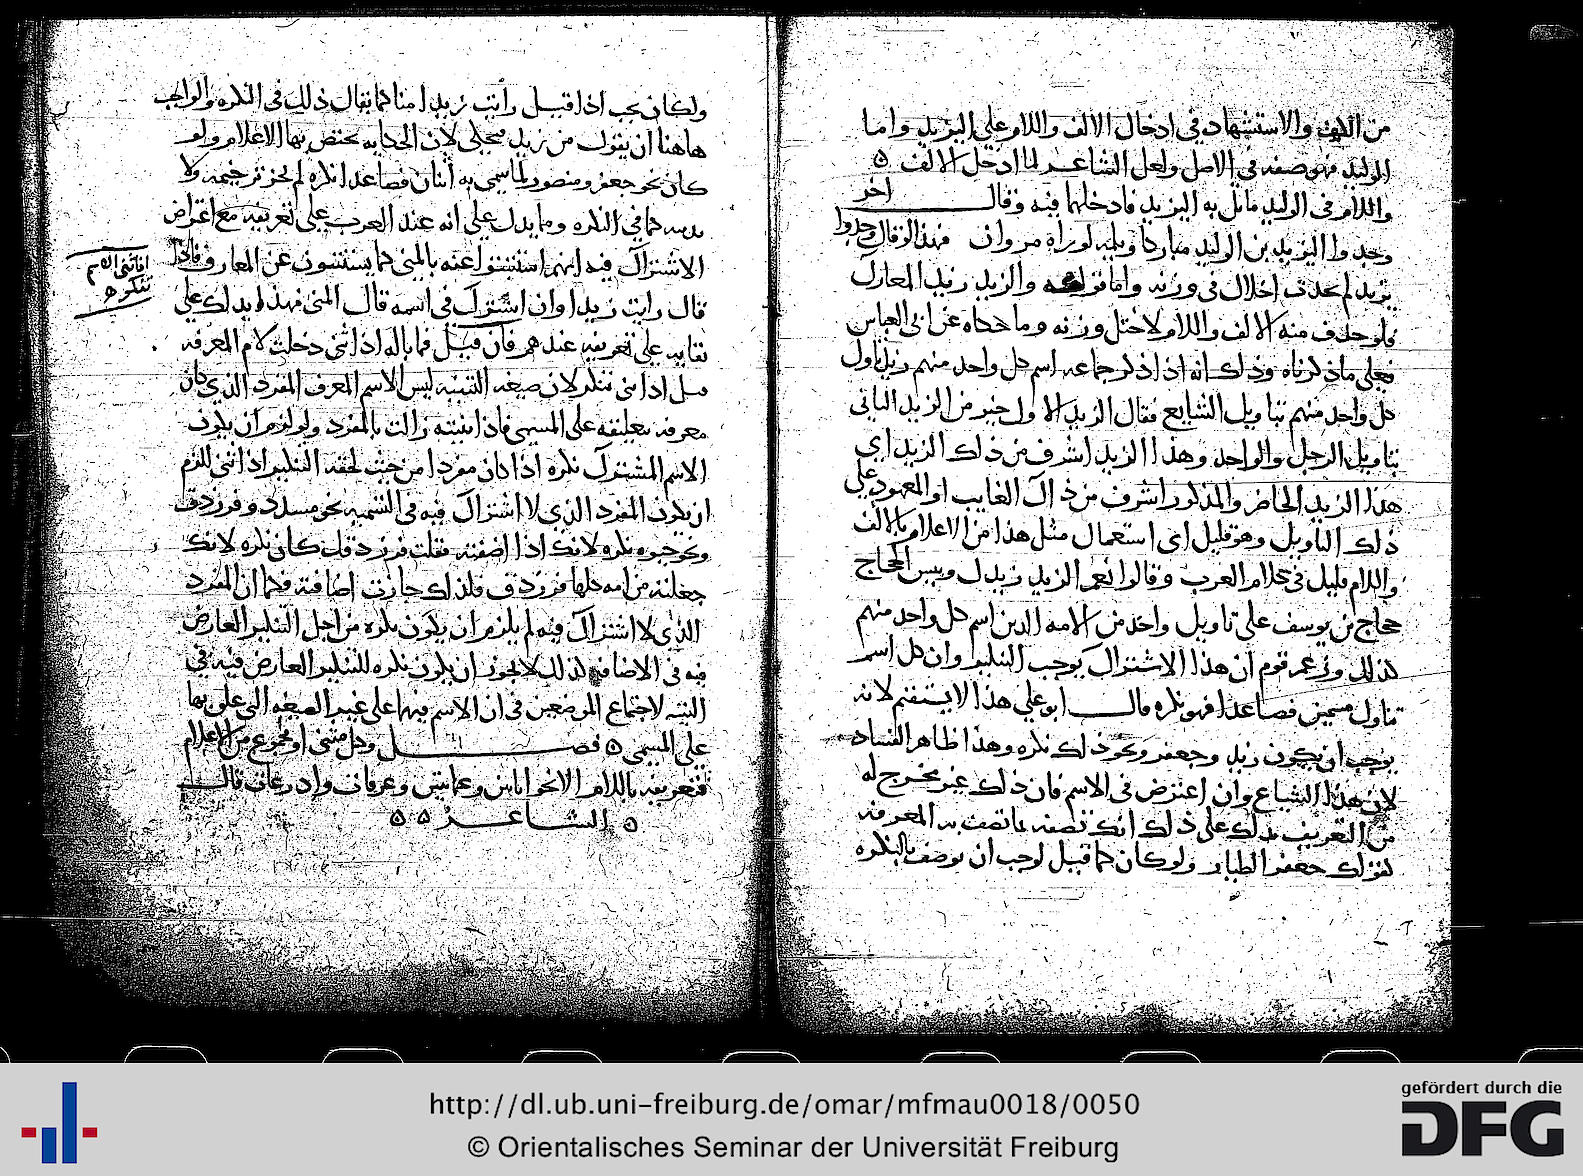 من والاستشهاد في ادخال الالف واللام على اليزيد واما
الوليد فهو صفه في الاصل ولعل الشاعر لما ادخل الالف
واللام في الوليد ماثل به اليزيد فادخلهما فيه وقال اخر
وجدوا اليزيد بن الوليد مباركا وراه مروان فهذا لو قال وجدوا
يزيد لم يحدث اخلال في وزنه واما والزيد زيد المعارك
فلو حذف منه الالف واللام لاختل وزنه وما حكاه عن ابي العباس
فعلى ما ذكرناه وذلك انه اذا ذكر جماعه اسم كل واحد منهم زيد تاول
كل واحد منهم بتاويل الشايع فقال الزيد الاول خير من الزيد الثاني
بتاويل الرجل والواحد وهذا الزيد اشرف من ذلك الزيد اي
هذا الزيد الحاضر والمذكور اشرف من ذاك الغايب او المعهود على
ذلك التاويل وهو قليل اي استعمال مثل هذا من الاعلام بالالف
واللام قليل في كلام العرب وقالوا نعم الزيد زيد وبيس الحجاج
حجاج بن يوسف على تاويل واحد من الامه الذين اسم كل واحد منهم
كذلك وزعم قوم ان هذا الاشتراك يوجب التنكير وان كل اسم
تناول مسميين فصاعدا فهو نكره قال ابو علي هذا لا يستقيم لانه
يوجب ان يكون زيد وجعفر ونحو ذلك نكره وهذا ظاهر الفساد
لان هذا الشياع وان اعترض في الاسم فان ذلك غير مخرج له
من التعريف يدلك على ذلك انك تصفه بما تصف به المعرفه
كقولك جعفر الطيار ولو كان كما قيل لوجب ان يوصف بالنكره
ولكان يجب اذا قيل رايت زيدا منا كما يقال ذلك في النكره والواجب
هاهنا ان يقول من زيد فيحكي لان الحكايه يختص بها الاعلام ولو
كان نحو جعفر ومنصور لما سمي به اثنان فصاعدا نكره لم يجز ترخيمه ولا
كما في النكره ومما يدل على انه عند العرب على تعريفه مع اعتراض
الاشتراك فيه انهم استثبتوا عنه بالمني كما يستثبتون عن المعارف فاذا
قال رايت زيدا وان اشترك في اسمه قال المني فهذا يدلك على
بقايه على تعريفه عندهم فان قيل فما باله اذا ثني دخلت لام المعرفه
قيل اذا ثني تنكر لان صيغه التثنيه ليس الاسم المعرف المفرد الذي كان
معرفه بتعليقه على المسمى فاذا ثنيته زالت بالمفرد ولو لزم ان يكون
الاسم المشترك نكره اذا كان مفردا من حيث لحقه التنكير اذا ثني للزم
ان يكون المفرد الذي لا اشتراك فيه في التسميه نحو مسدد وفرزدق
ونحوه نكره لانك اذا اضفته فقلت فرزدقك كان نكره لانك
جعلته من امه كلها فرزدق فلذلك جازت اضافته فكما ان المفرد
الذي لا اشتراك فيه لم يلزم ان يكون نكره من اجل التنكير العارض
فيه في الاضافه كذلك لا يجوز ان يكون نكره للتنكير العارض فيه في
التثنيه لاجتماع الموضعين في ان الاسم فيهما على غير الصيغه التي علق بها
على المسمى فصل وكل مثنى او مجموع من الاعلام
فتعريفه باللام الا نحو ابانين وعمايتين وعرفات واذرعات قال
الشاعر
اذا ثني الاسم
تنكر
http://dl.ub.uni-freiburg.de/omar/mfmau0018/0050
© Orientalisches Seminar der Universität Freiburg
gefördert durch die
DFG